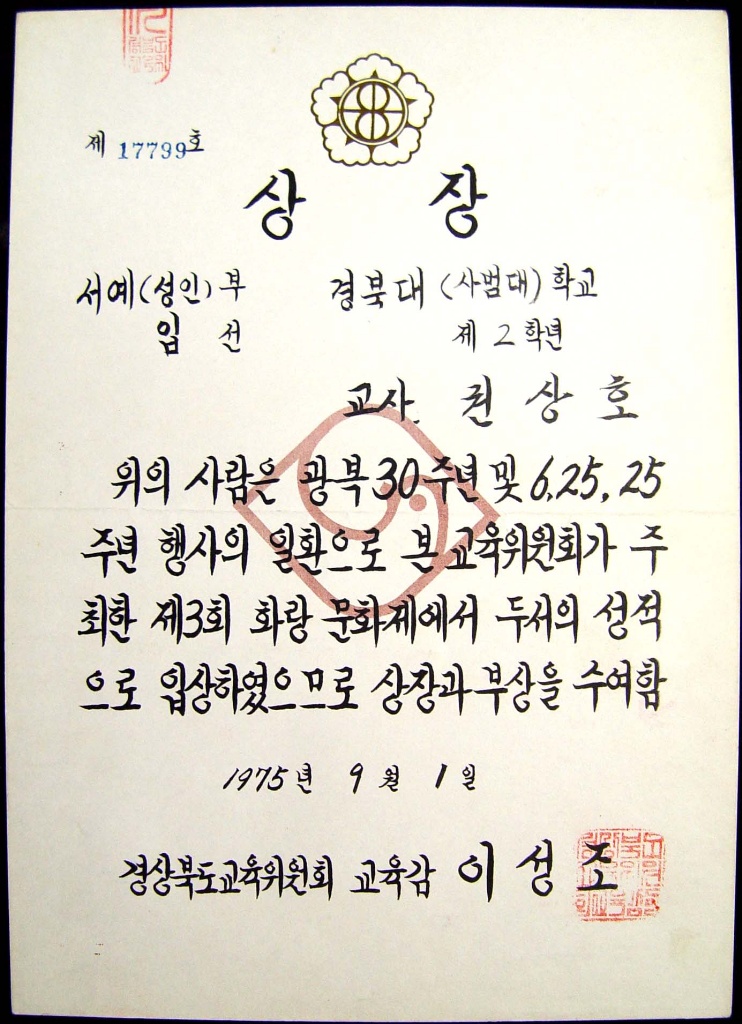 제 17799호
상 장
서예(성인)부 경북대(사범대)학교
입 선 제 2 학년
교사. 권 상 호
위의 사람은 광복 30주년 및 6.25, 25
주년 행사의 일환으로 본 교육위원회가 주
최한 제3회 화랑 문화제에서 두서의 성적
으로 입상하였으므로 상장과 부상을 수여함
1975년 9월 1일
경상북도교육위원회 교육감 이 성 조